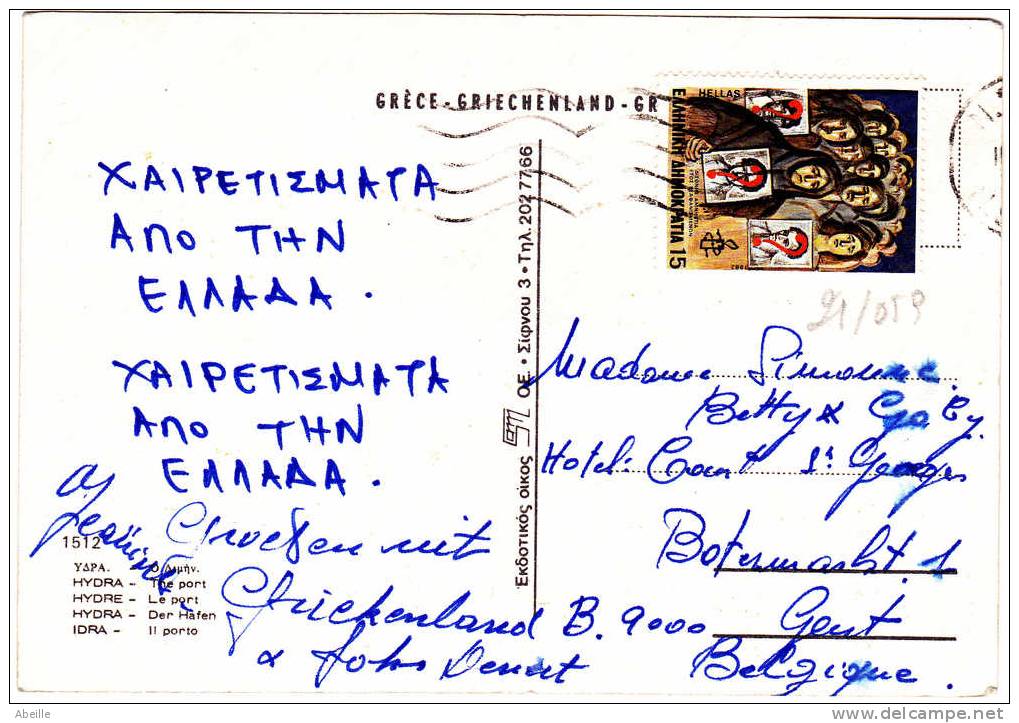 GRÈCE - GRIECHENLAND - GR
HELLAS
ΕΛΛΗΝΙΚΗ ΔΗΜΟΚΡΑΤΙΑ 15
1982
ΧΑΙΡΕΤΙΣΜΑΤΑ
ΑΠΟ ΤΗΝ
ΕΛΛΑΔΑ .
ΧΑΙΡΕΤΙΣΜΑΤΑ
ΑΠΟ ΤΗΝ
ΕΛΛΑΔΑ .
Groeten uit
Griekenland
1512
ΥΔΡΑ. - Ὁ λιμήν.
HYDRA - The port
HYDRE - Le port
HYDRA - Der Hafen
IDRA - Il porto
Ἐκδοτικός οἶκος ΟΕ. • Σίφνου 3 • Τηλ. 2027766
21/059
Madame Simonne
Betty & Gaby.
Hotel: Court St Georges
Botermarkt. 1
B. 9000 Gent
Belgique .
Abeille
delcampe.net